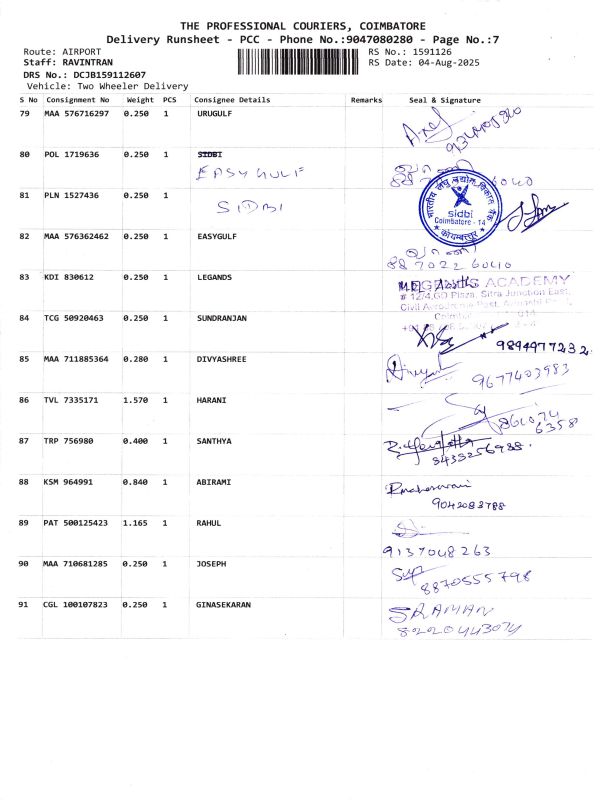 THE PROFESSIONAL COURIERS, COIMBATORE
Delivery Runsheet - PCC - Phone No.:9047080280 - Page No.:7
Route: AIRPORT
Staff: RAVINTRAN
DRS No.: DCJB159112607
Vehicle: Two Wheeler Delivery
RS No.: 1591126
RS Date: 04-Aug-2025
S No Consignment No Weight PCS Consignee Details Remarks Seal & Signature
79 MAA 576716297 0.250 1 URUGULF
80 POL 1719636 0.250 1 SIDBI
EASYGULF
81 PLN 1527436 0.250 1
SIDBI
भारतीय लघु उद्योग विकास बैंक
sidbi
Coimbatore - 14
कोयम्बत्तूर
82 MAA 576362462 0.250 1 EASYGULF
88 70226040
83 KDI 830612 0.250 1 LEGANDS
ACADEMY
# 12/4,GD Plaza, Sitra Junction East,
Civil Aerodrome Post,
84 TCG 50920463 0.250 1 SUNDRANJAN
9894977232
85 MAA 711885364 0.280 1 DIVYASHREE
9677403983
86 TVL 7335171 1.570 1 HARANI
861074
6358
87 TRP 756980 0.400 1 SANTHYA
8433256988
88 KSM 964991 0.840 1 ABIRAMI
9042083788
89 PAT 500125423 1.165 1 RAHUL
9137048263
90 MAA 710681285 0.250 1 JOSEPH
8870555798
91 CGL 100107823 0.250 1 GINASEKARAN
SRAMAN
8220443074